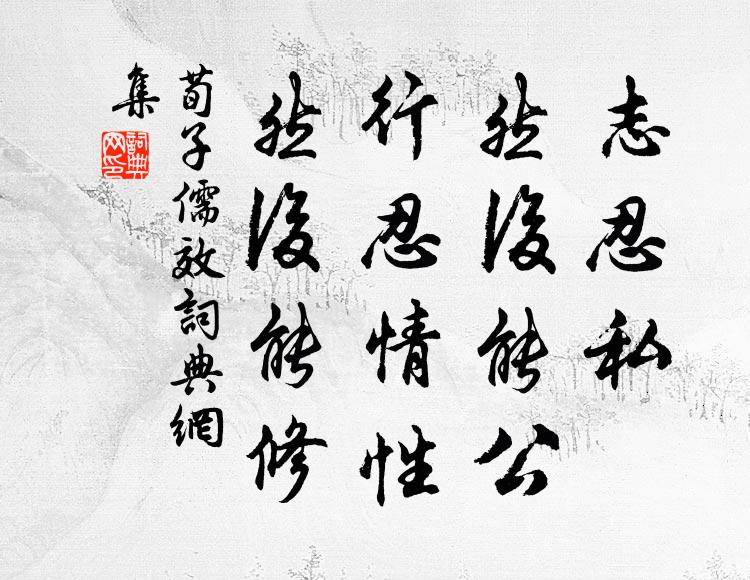 志忍私
然後能公
行忍情性
然後能修
荀子儒效詞典網
集
詞典
网印